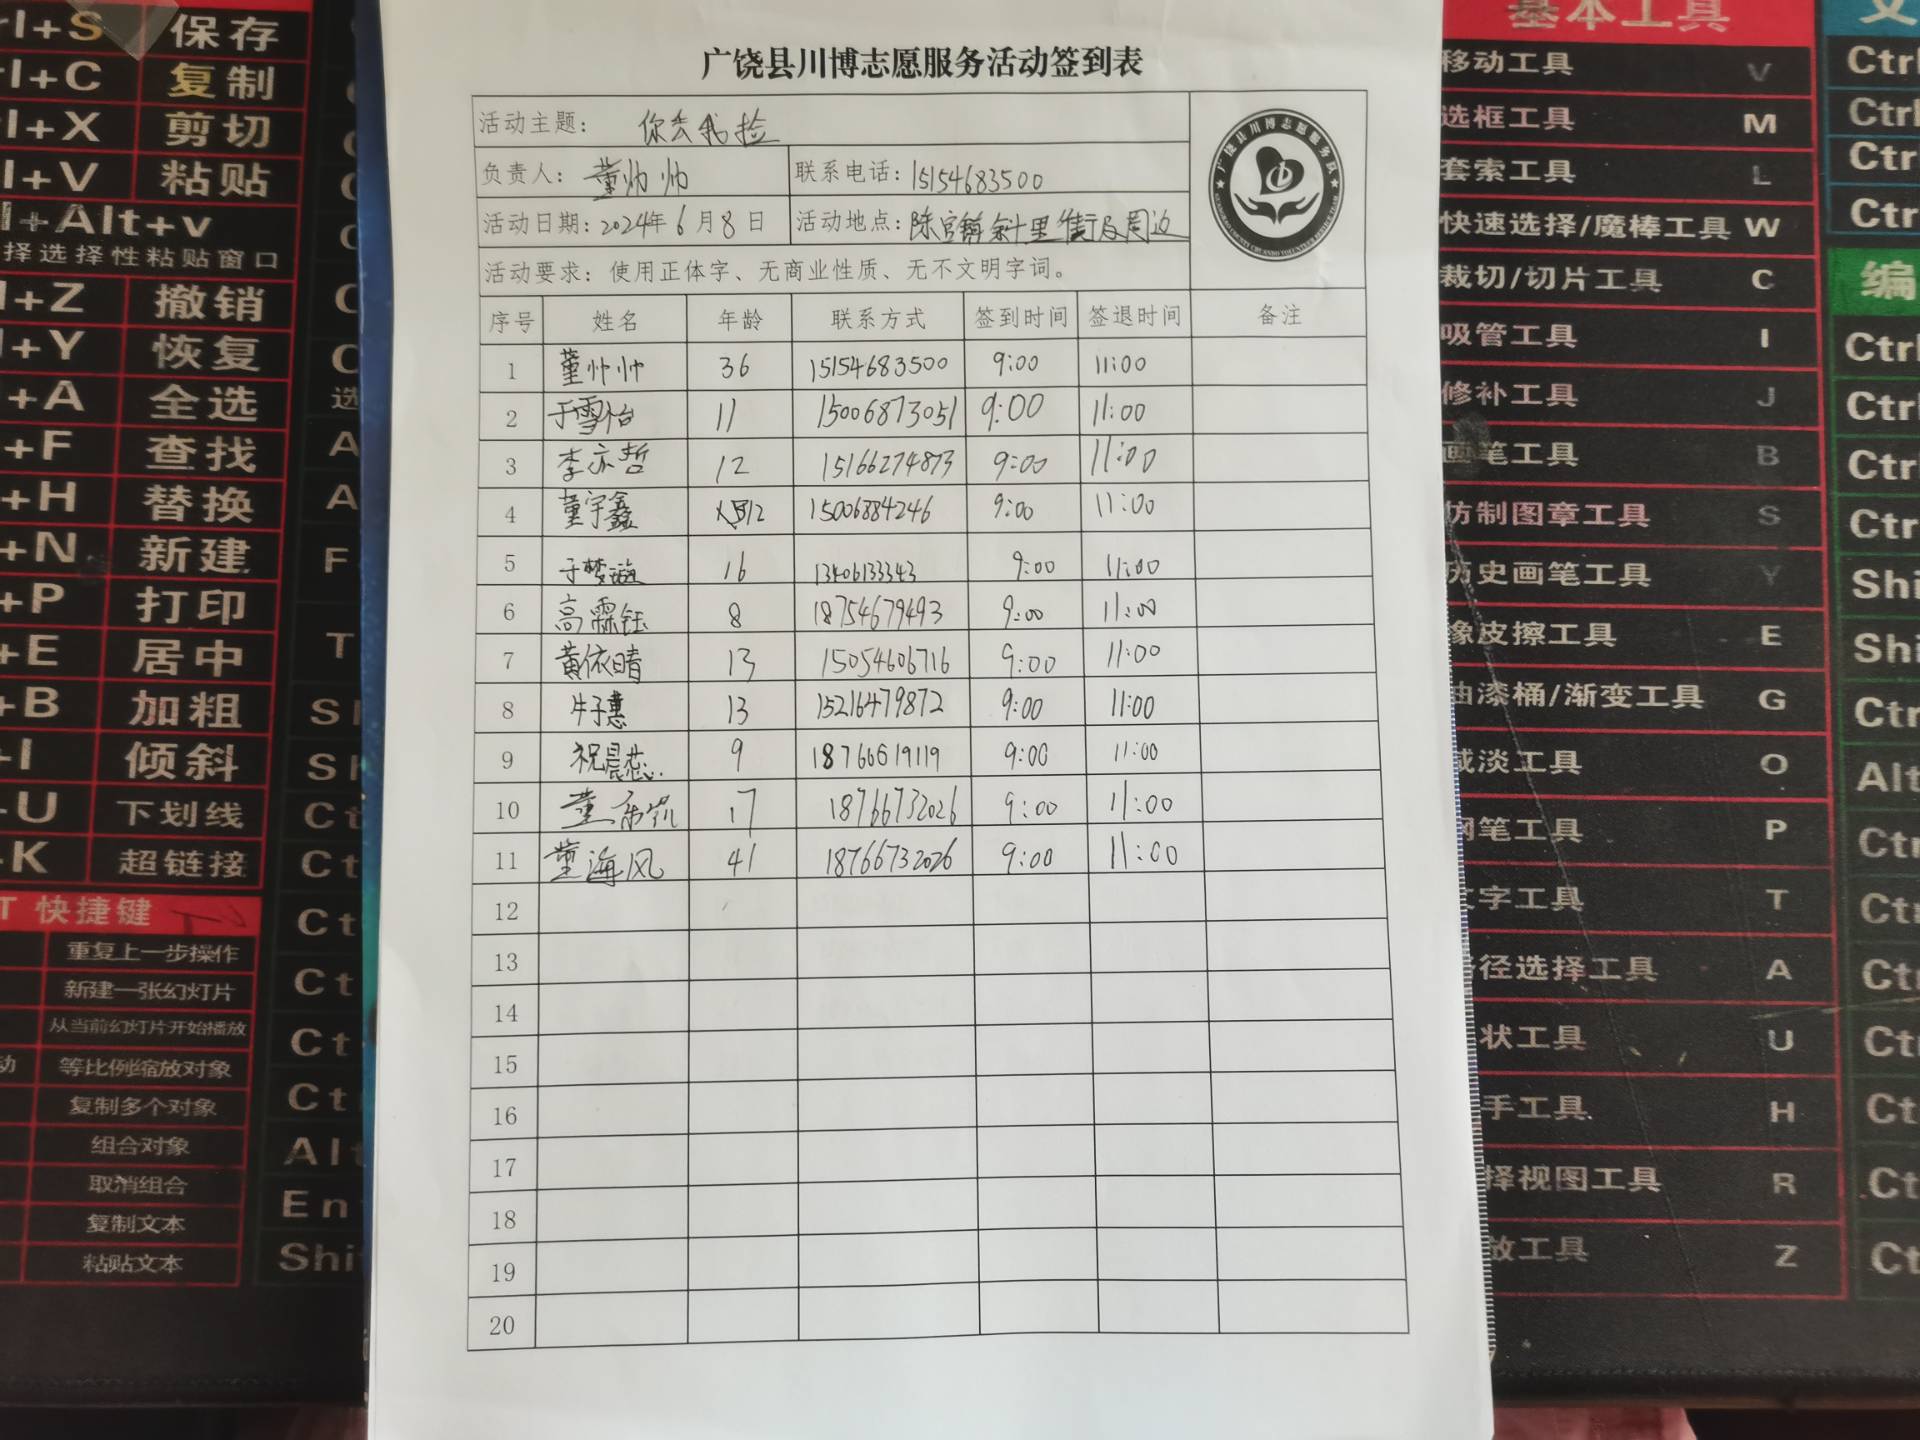 广饶县川博志愿服务活动签到表
活动主题： 你丢我捡
负责人： 董帅帅 联系电话：15154683500
活动日期：2024年6月8日 活动地点：陈官镇斜里街及周边
活动要求：使用正体字、无商业性质、无不文明字词。
广饶县川博志愿服务队
序号 姓名 年龄 联系方式 签到时间 签退时间 备注
1 董帅帅 36 15154683500 9:00 11:00
2 于雪怡 11 15006873051 9:00 11:00
3 李亦哲 12 15166274873 9:00 11:00
4 董宇鑫 12 15006884246 9:00 11:00
5 于梦 16 13406133343 9:00 11:00
6 高霂钰 8 18754679493 9:00 11:00
7 黄依晴 13 15054606716 9:00 11:00
8 牛子惠 13 15216479872 9:00 11:00
9 祝晨蕊 9 18766619119 9:00 11:00
10 董 17 18766732026 9:00 11:00
11 董海风 41 18766732026 9:00 11:00
12
13
14
15
16
17
18
19
20
rl+S 保存
rl+C 复制
rl+X 剪切
l+V 粘贴
l+Alt+v
择选择性粘贴窗口
l+Z 撤销
l+Y 恢复
+A 全选
+F 查找
+H 替换
+N 新建
+P 打印
+E 居中
+B 加粗
+I 倾斜
+U 下划线
+K 超链接
T 快捷键
重复上一步操作
新建一张幻灯片
从当前幻灯片开始播放
动 等比例缩放对象
复制多个对象
组合对象
取消组合
复制文本
粘贴文本
选
A
A
F
T
Sh
Sh
Ct
Ct
Ct
Ct
Ct
Ct
Alt
En
Shi
基本工具
移动工具 V
选框工具 M
套索工具 L
快速选择/魔棒工具 W
裁切/切片工具 C
吸管工具 I
修补工具 J
画笔工具 B
仿制图章工具 S
历史画笔工具 Y
橡皮擦工具 E
油漆桶/渐变工具 G
减淡工具 O
钢笔工具 P
文字工具 T
径选择工具 A
状工具 U
手工具 H
择视图工具 R
放工具 Z
文
Ctrl
Ctrl
Ctrl
Ctrl
编
Ctrl
Ctrl
Ctrl
Ctrl
Shi
Shi
Ctrl
Alt
Ctr
Ctr
Ct
Ct
Ct
Ct
Ct